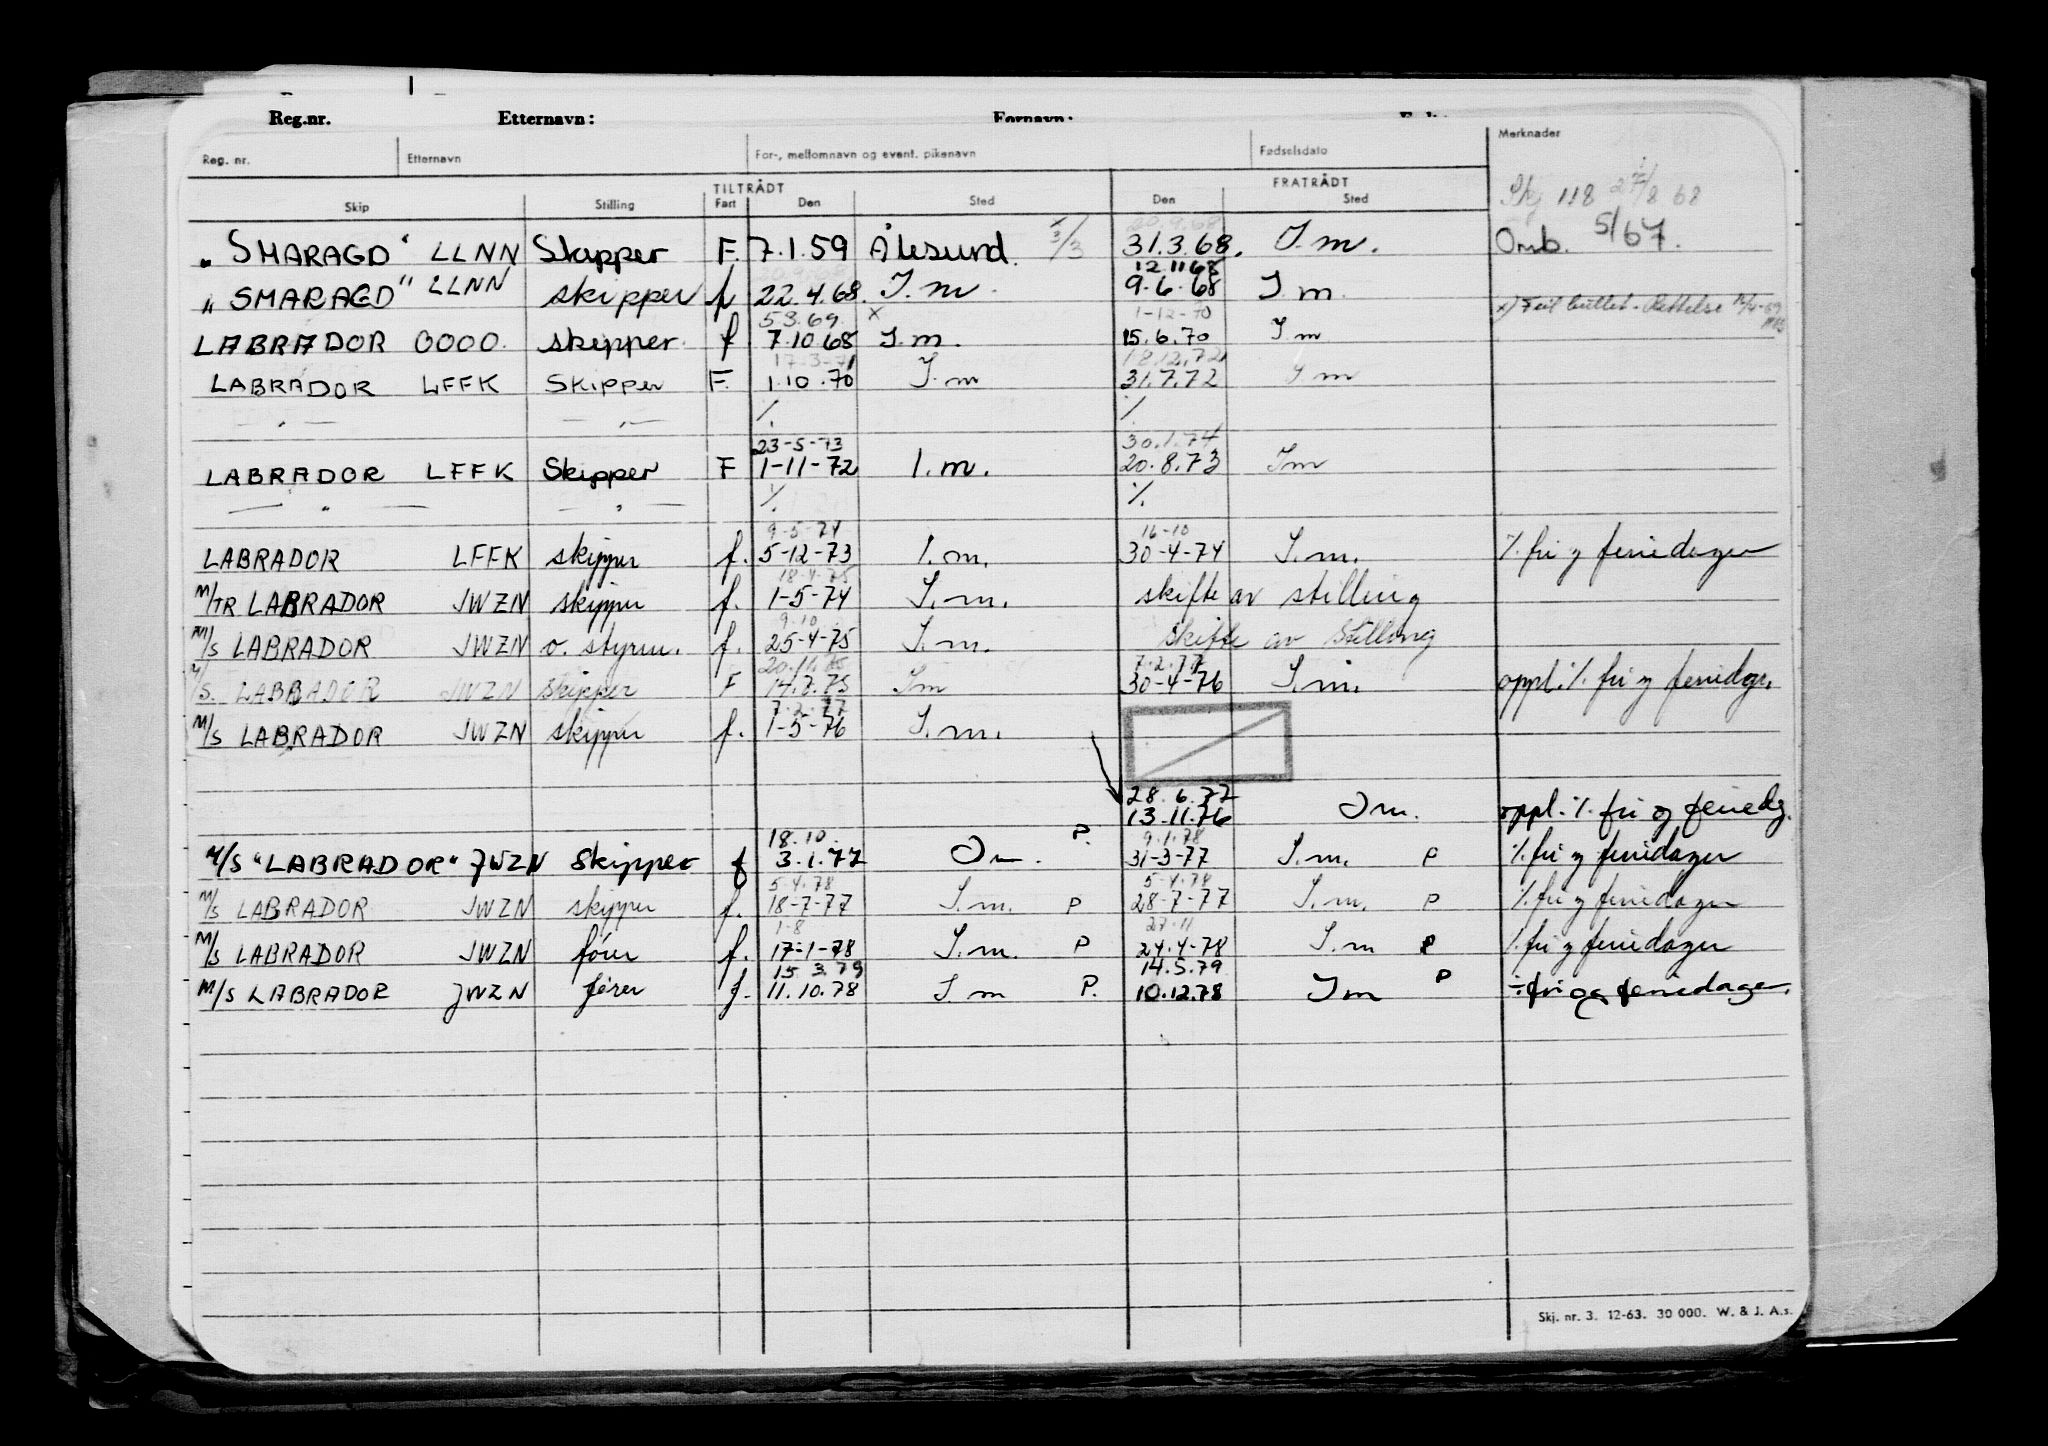 Reg.nr. Etternavn: Fornavn:
Reg. nr. Etternavn For-, mellomnavn og event. pikenavn Fødselsdato Merknader
TILTRÅDT FRATRÅDT
Skip Stilling Fart Den Sted Den Sted
Skj 118 27/8 68
20.9.68
"SMARAGD" LLNN Skipper F. 7.1.59 Ålesund. x 3/3 31.3.68. I.m. Omb. 5/67.
20.9.68 12.11 68
"SMARAGD" LLNN skipper f 22.4.68. I.m. 9.6.68 I m.
5 3.69. x 1-12-70 x) Feil buttet. Rettelse
LABRADOR OOOO. skipper. f 7.10.68 I.m. 15.6.70 I m
17-3-71 18.12.72
LABRADOR LFFK SKipper F. 1.10.70 I.m 31.7.72 I m
— " — — " — ./. ./.
23-5-73 30.1.74
LABRADOR LFFK Skipper F 1-11-72 I.m. 20.8.73 Im
— " — — " — ./. ./.
9-5-74 16-10
LABRADOR LFFK skipper f. 5-12-73 I.m. 30-4-74 I.m. ./. fri og feriedager
18-4-75
M/TR LABRADOR JWZN skipper f. 1-5-74 I.m. skifte av stilling
9.10
M/S LABRADOR JWZN o. styrm. f. 25-4-75 I.m. skifte av stilling
20.11.75 7.2.77
M/S. LABRADOR JWZN skipper F 14.8.75 Im 30-4-76 I.m. oppl. ./. fri og feriedgr.
7.2.77
M/S LABRADOR JWZN skipper f. 1-5-76 I.m.
28.6.77
13.11.76 Im. oppl. ./. fri og feriedg.
18.10. 9.1.78
M/S "LABRADOR" JWZN Skipper f 3.1.77 Im. P. 31-3-77 I.m. P ./. fri og feriedager
5-4.78 5-4.78
M/S LABRADOR JWZN skipper f. 18-7-77 I.m. P 28-7-77 I.m. P ./. fri og feriedager
1-8 27-11
M/S LABRADOR JWZN fører f. 17-1-78 I.m. P 24.4-78 I.m P ./. fri og feriedager
15 3.79 14.5.79
M/S LABRADOR JWZN fører f. 11.10.78 I m P. 10.12.78 Im P ÷ fri og feriedager.
Skj. nr. 3. 12-63. 30 000. W. & J. A.s.